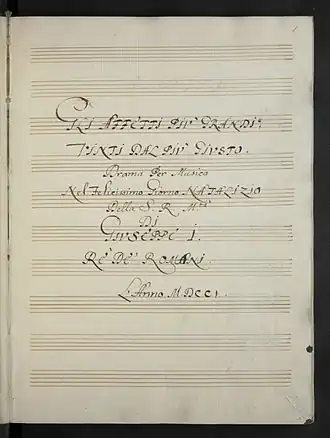 GLI AFFETTI PIU' GRANDI,
VINTI DAL PIU' GIUSTO.
Drama Per Musica
Nel Felicissimo Giorno NATALIZIO
Della S. R. M.tà
DI
GIUSEPPE I.
RE' DE' ROMANI.
L'Anno M.DCCI.